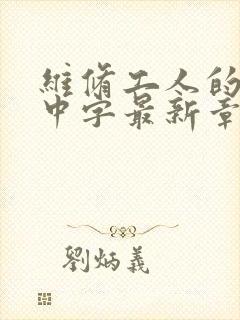 維修工人的
中字最新章
劉炳義